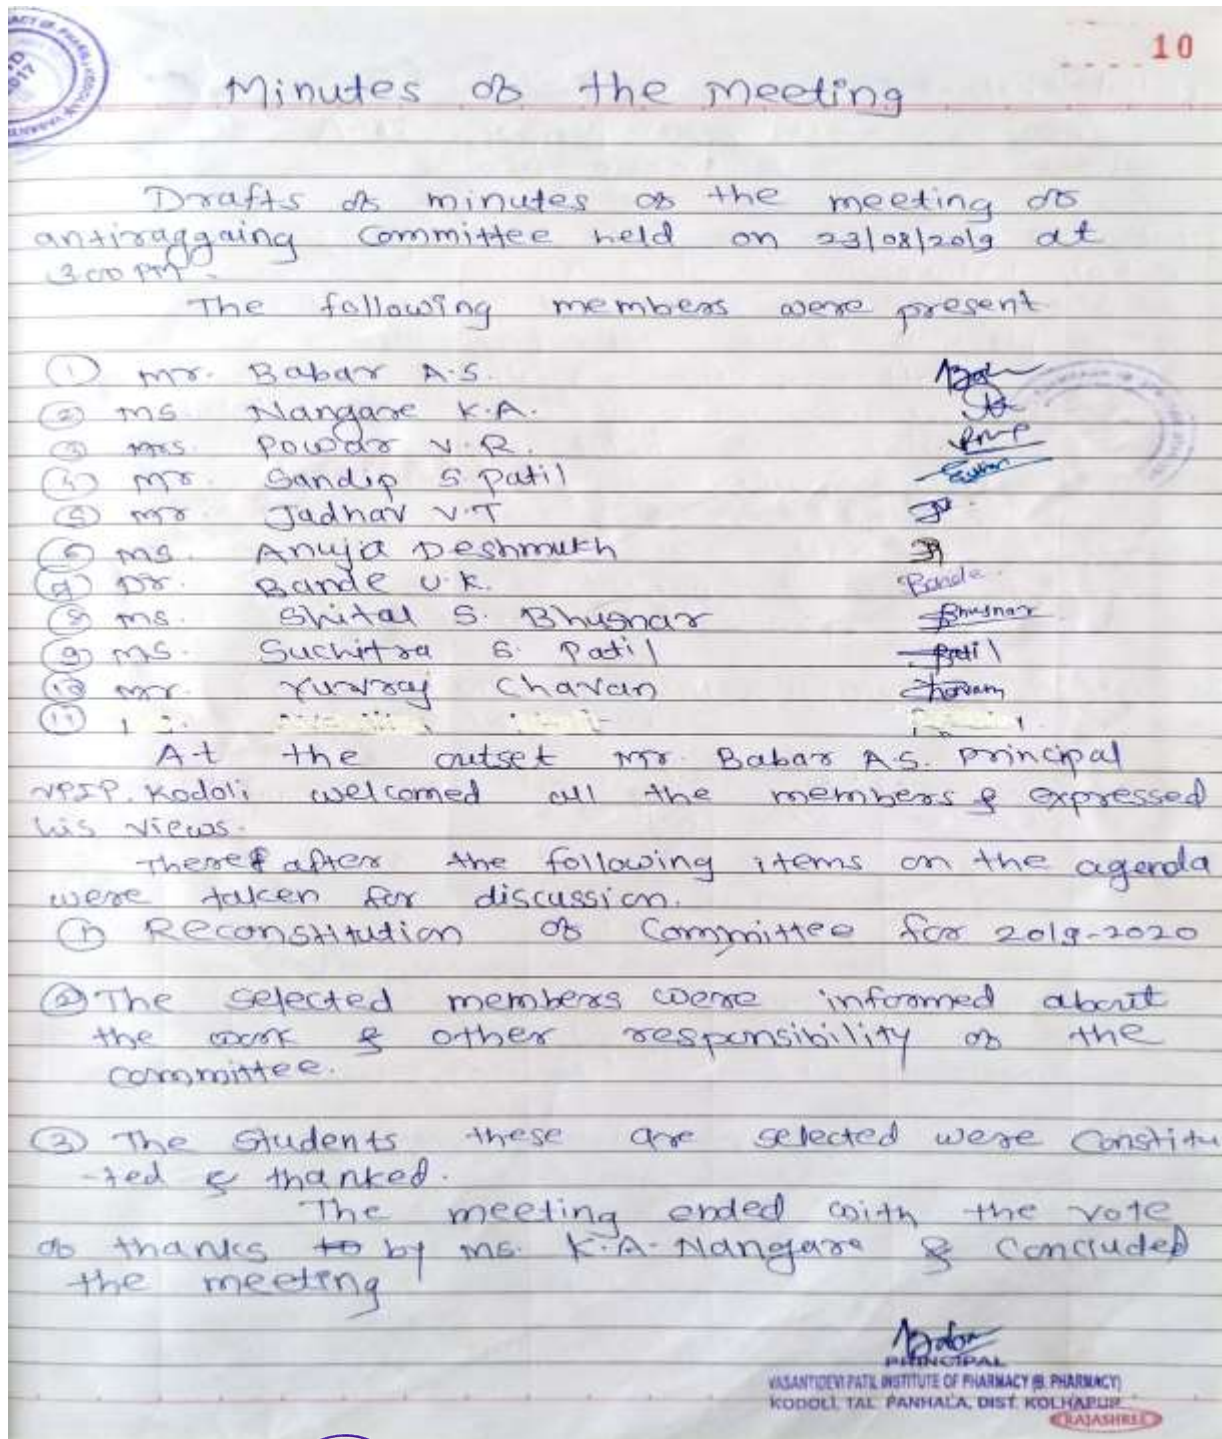 10
Minutes of the Meeting
Drafts of minutes of the meeting of
antiraggaing Committee held on 23/08/2019 at
3:00 PM.
The following members were present
① Mr. Babar A.S.
② Ms Nangare K.A.
③ Mrs. Powar V.R.
④ Mr. Sandip S. Patil
⑤ Mr. Jadhav V.T
⑥ Ms. Anuja Deshmukh
⑦ Dr. Bande U.K. Bande
⑧ Ms. Shital S. Bhusnar Bhusnar
⑨ Ms. Suchitra S. Patil Patil
⑩ Mr. Yuvraj Chavan Chavan
⑪
At the outset Mr. Babar A.S. Principal
VPIP. Kodoli welcomed all the members & expressed
his views.
There after the following items on the agenda
were taken for discussion.
① Reconstitution of Committee for 2019-2020
② The selected members were informed about
the work & other responsibility of the
committee.
③ The Students these are selected were Constitu
-ted & thanked.
The meeting ended with the vote
of thanks to by Ms. K.A. Nangare & Concluded
the meeting
PRINCIPAL
VASANTIDEVI PATIL INSTITUTE OF PHARMACY (B. PHARMACY)
KODOLI, TAL. PANHALA, DIST. KOLHAPUR.
RAJASHREE